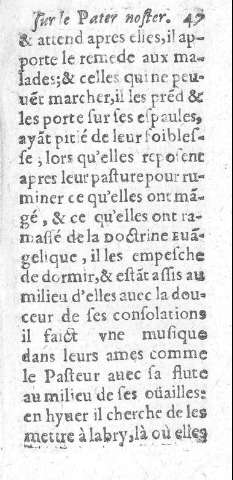 ſur le Pater noſter. 47
& attend apres elles, il ap-
porte le remede aux ma-
lades; & celles qui ne peu-
uẽt marcher, il les prẽd &
les porte ſur ſes eſpaules,
ayãt pitié de leur foibleſ-
ſe; lors qu'elles repoſent
apres leur paſture pour ru-
miner ce qu'elles ont mã-
gé, & ce qu'elles ont ra-
maſſé de la Doctrine Euã-
gelique, il les empeſche
de dormir, & eſtãt aſſis au
milieu d'elles auec la dou-
ceur de ſes conſolations
il faict vne muſique
dans leurs ames comme
le Paſteur auec ſa flute
au milieu de ſes oüailles:
en hyuer il cherche de les
mettre à l'abry, là où elles